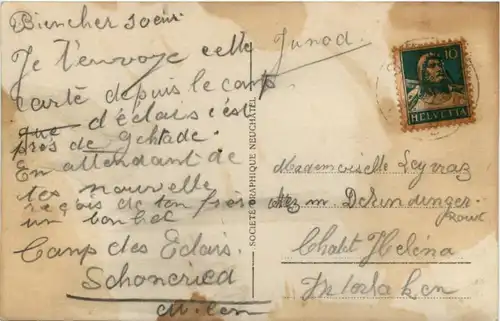 Biencher soeur
Je t'envoye cette
carte depuis le camp
que d'éclais c'est
près de gchtade.
En attendant de
tes nouvelle
reçois de ton frère
un bonbec
Camp des Eclais.
Schonried
Junod.
SOCIÉTÉ GRAPHIQUE NEUCHÂTEL
10
HELVETIA
Mademoiselle Leyvraz
chez m. Derindinger
Chalet Helena
Interlaken